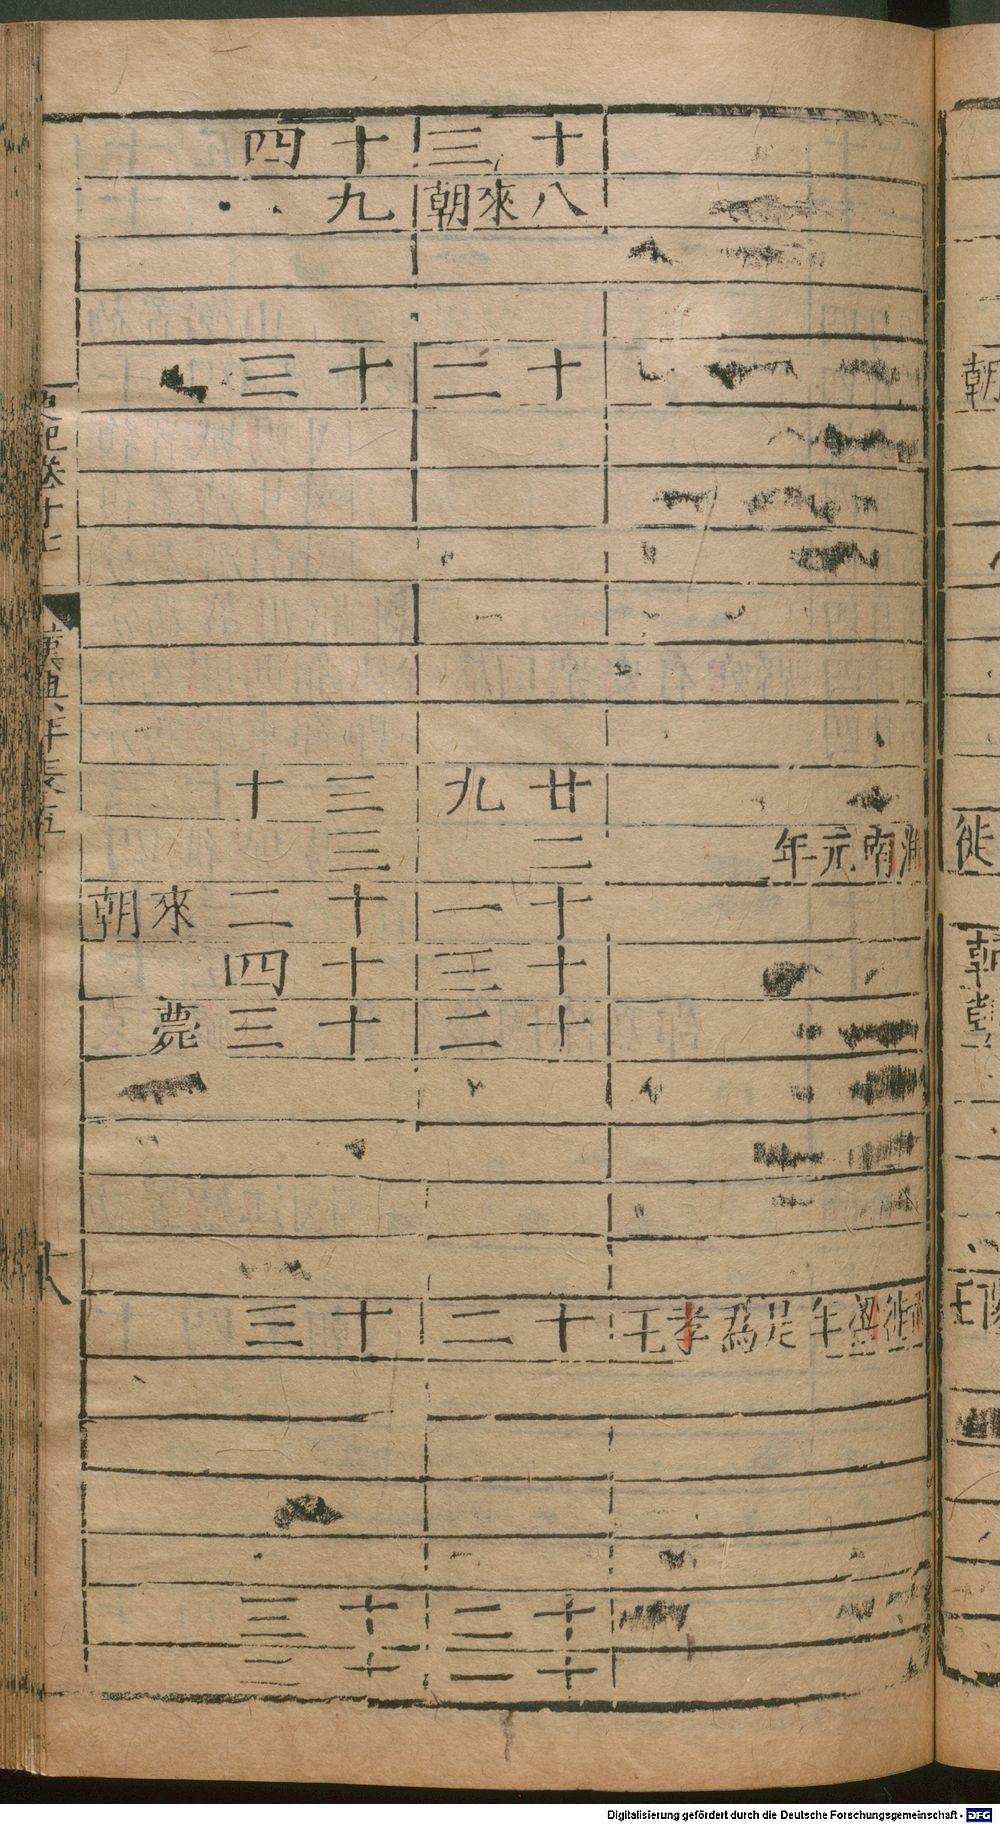 朝
徙
淮南元年
徙梁年是爲孝王
十三
八來朝
十二
廿九
二
十一
十三
十二
十二
十二
十二
十四
九
十三
三十
三
十二來朝
十四
十三薨
十三
十三
十三
卷十七
年表五
Digitalisierung gefördert durch die Deutsche Forschungsgemeinschaft - DFG